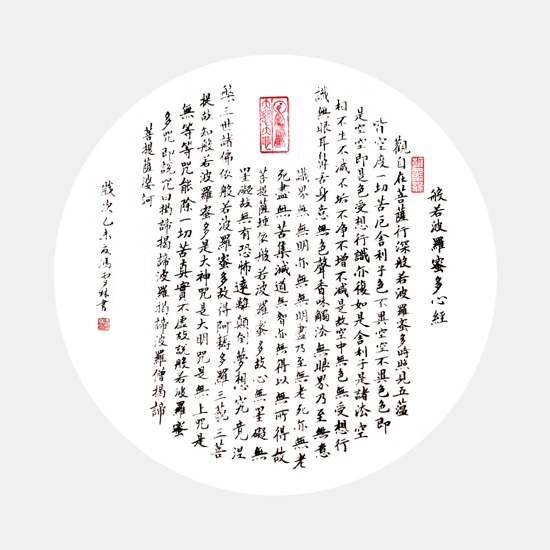 般若波羅蜜多心經
觀自在菩薩行深般若波羅蜜多時照見五蘊
皆空度一切苦厄舍利子色不異空空不異色色即
是空空即是色受想行識亦復如是舍利子是諸法空
相不生不滅不垢不淨不增不減是故空中無色無受想行
識無眼耳鼻舌身意無色聲香味觸法無眼界乃至無意
識界無無明亦無無明盡乃至無老死亦無老
死盡無苦集滅道無智亦無得以無所得故
菩提薩埵依般若波羅蜜多故心無罣礙無
罣礙故無有恐怖遠離顛倒夢想究竟涅
槃三世諸佛依般若波羅蜜多故得阿耨多羅三藐三菩
提故知般若波羅蜜多是大神咒是大明咒是無上咒是
無等等咒能除一切苦真實不虛故說般若波羅蜜
多咒即說咒曰揭諦揭諦波羅揭諦波羅僧揭諦
菩提薩婆訶
歲次乙未馮雪林書